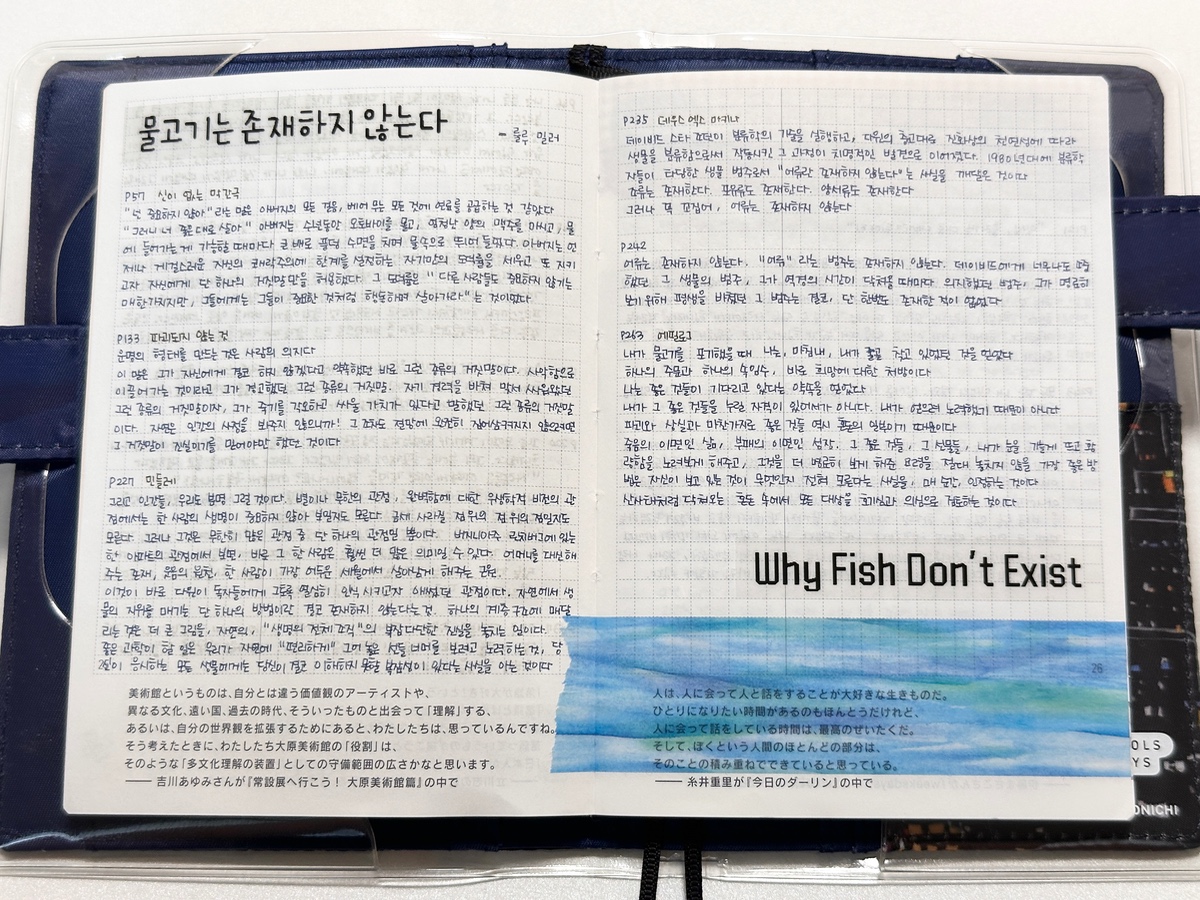 물고기는 존재하지 않는다
- 룰루 밀러
P57 신이 없는 막간극
"넌 중요하지 않아"라는 말은 아버지의 모든 걸음, 베어 무는 모든 것에 연료를 공급하는 것 같았다
"그러니 너 좋은대로 살아" 아버지는 수년동안 오토바이를 몰고, 엄청난 양의 맥주를 마시고, 물
에 들어가는게 가능할 때마다 큰 배로 풀럼 수면을 치며 물속으로 뛰어 들었다. 아버지는 언
제나 게걸스러운 자신의 쾌락주의에 한계를 설정하는 자기만의 도덕률을 세우고 또 지키
고자 자신에게 단 하나의 거짓말만을 허용했다. 그 도덕률은 "다른 사람들도 중요하지 않기는
매한가지지만, 그들에게는 그들이 중요한 것처럼 행동하며 살아가라"는 것이었다.
P133 파괴되지 않는 것
운명의 형태를 만드는 것은 사람의 의지다
이 말은 그가 자신에게 결코 하지 않겠다고 약속했던 바로 그런 종류의 거짓말이다. 사악함으로
이끌어가는 것이라고 그가 경고했던 그런 종류의 거짓말. 자기 경력을 바쳐 맞서 싸웠던
그런 종류의 거짓말이자, 그가 죽기를 각오하고 싸울 가치가 있다고 말했던 그런 종류의 거짓말
이다. 자연은 인간의 사정을 봐주지 않으니까! 그조차도 절망에 완전히 집어삼켜지지 않으려면
그 거짓말이 진실이기를 믿어야만 했던 것이다
P227 민들레
그리고 인간들, 우리도 분명 그럴 것이다. 별이나 무한의 관점, 완벽함에 대한 우생학적 비전의 관
점에서는 한 사람의 생명이 중요하지 않아 보일지도 모른다. 금세 사라질 점 위의 점 위의 점일지도
모른다. 그러나 그것은 무한히 많은 관점 중 단 하나의 관점일 뿐이다. 버지니아주 린치버그에 있는
한 아파트의 관점에서 보면, 바로 그 한 사람은 훨씬 더 많은 의미일 수 있다. 어머니를 대신해
주는 존재, 웃음의 원천, 한 사람이 가장 어두운 세월에서 살아남게 해주는 근원.
이것이 바로 다윈이 독자들에게 그토록 열심히 인식시키고자 애썼던 관점이다. 자연에서 생
물의 지위를 매기는 단 하나의 방법이란 결코 존재하지 않는다는 것. 하나의 계층구조에 매달
리는 것은 더 큰 그림을, 자연의, "생명의 전체 조직"의 복잡다단한 진실을 놓치는 일이다.
좋은 과학이 할 일은 우리가 자연에 "편리하게" 그어놓은 선들 너머를 보려고 노력하는 것, 당
신이 응시하는 모든 생물에게는 당신이 결코 이해하지 못할 복잡성이 있다는 사실을 아는 것이다
美術館というものは、自分とは違う価値観のアーティストや、
異なる文化、遠い国、過去の時代、そういったものと出会って「理解」する、
あるいは、自分の世界観を拡張するためにあると、わたしたちは、思っているんですね。
そう考えたときに、わたしたち大原美術館の「役割」は、
そのような「多文化理解の装置」としての守備範囲の広さかなと思います。
── 吉川あゆみさんが『常設展へ行こう! 大原美術館篇』の中で
P235 데우스 엑스 마키나
데이비드 스타 조던이 분류학의 기술을 실행하고, 다윈의 충고대로 진화상의 친연성에 따라
생물을 분류함으로써 작동시킨 그 과정이 치명적인 발견으로 이어졌다. 1980년대에 분류학
자들이 타당한 생물 범주로서 "어류란 존재하지 않는다"는 사실을 깨달은 것이다
조류는 존재한다. 포유류도 존재한다. 양서류도 존재한다
그러나 꼭 꼬집어, 어류는 존재하지 않는다
P242
어류는 존재하지 않는다. "어류"라는 범주는 존재하지 않는다. 데이비드에게 너무나도 소중
했던 그 생물의 범주, 그가 역경의 시간이 닥쳐올 때마다 의지했던 범주, 그가 명료히
보기 위해 평생을 바쳤던 그 범주는 결코, 단 한번도 존재한 적이 없었다
P263 에필로그
내가 물고기를 포기했을 때 나는, 마침내, 내가 줄곧 찾고 있었던 것을 얻었다
하나의 주문과 하나의 속임수, 바로 희망에 대한 처방이다
나는 좋은 것들이 기다리고 있다는 약속을 얻었다
내가 그 좋은 것들을 누릴 자격이 있어서가 아니다. 내가 얻으려 노력했기 때문이 아니다
파괴와 상실과 마찬가지로 좋은 것들 역시 혼돈의 일부이기 때문이다
죽음의 이면인 삶, 부패의 이면인 성장. 그 좋은 것들, 그 선물들, 내가 눈을 가늘게 뜨고 황
량함을 노려보게 해주고, 그것을 더 명료히 보게 해준 요령을 절대 놓치지 않을 가장 좋은 방
법은 자신이 보고 있는 것이 무엇인지 전혀 모른다는 사실을, 매 순간, 인정하는 것이다
산사태처럼 닥쳐오는 혼돈 속에서 모든 대상을 호기심과 의심으로 검토하는 것이다
Why Fish Don't Exist
26
人は、人に会って人と話をすることが大好きな生きものだ。
ひとりになりたい時間があるのもほんとうだけれど、
人に会って話をしている時間は、最高のぜいたくだ。
そして、ぼくという人間のほとんどの部分は、
そのことの積み重ねでできていると思っている。
── 糸井重里が『今日のダーリン』の中で
OLS
YS
ONICHI